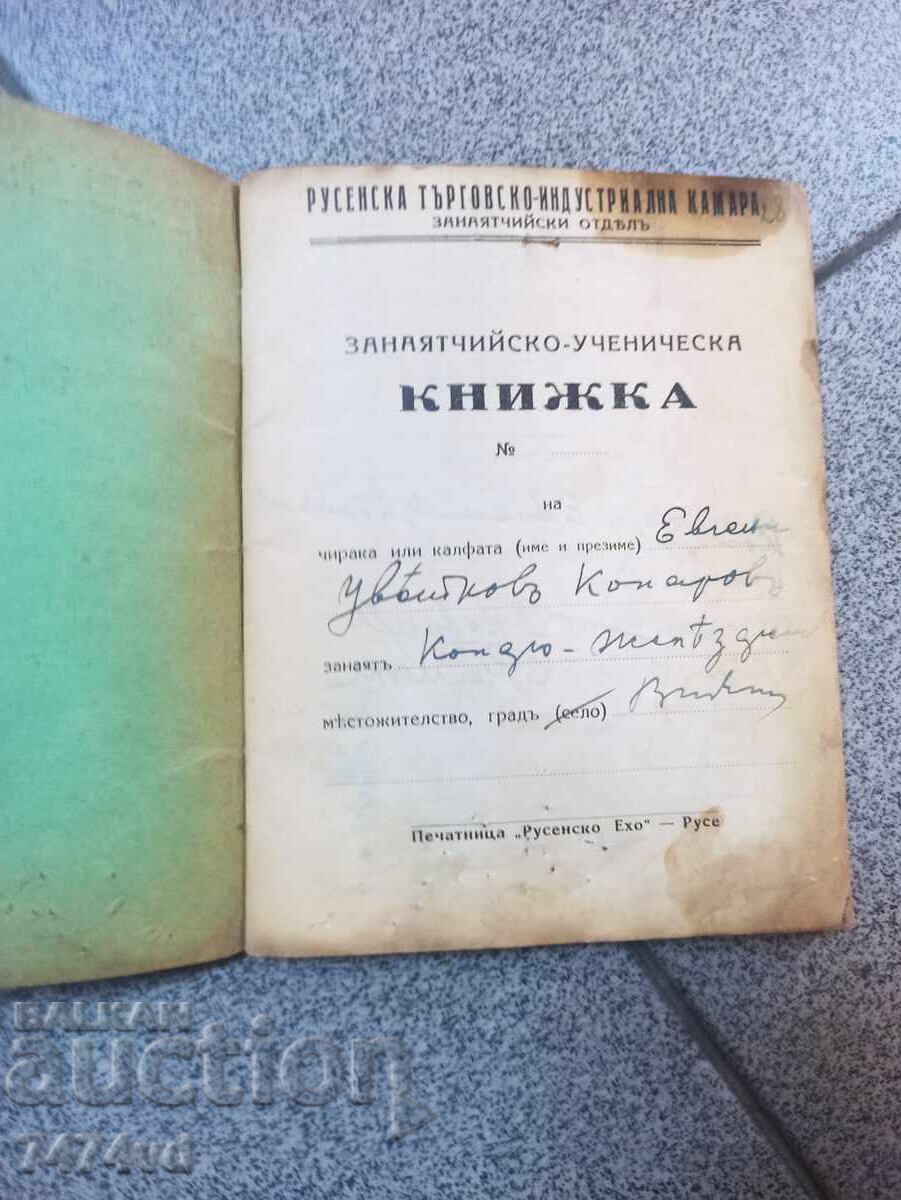 РУСЕНСКА ТЪРГОВСКО-ИНДУСТРИАЛНА КАМАРА
28
ЗАНАЯТЧИЙСКИ ОТДѢЛЪ
ЗАНАЯТЧИЙСКО-УЧЕНИЧЕСКА
КНИЖКА
№
на
чирака или калфата (име и презиме) Евгени
Цвѣтковъ Копаровъ
занаятъ
мѣстожителство, градъ (село) Видинъ
Печатница „Русенско Ехо“ — Русе
BALKAN
auction
7474vd